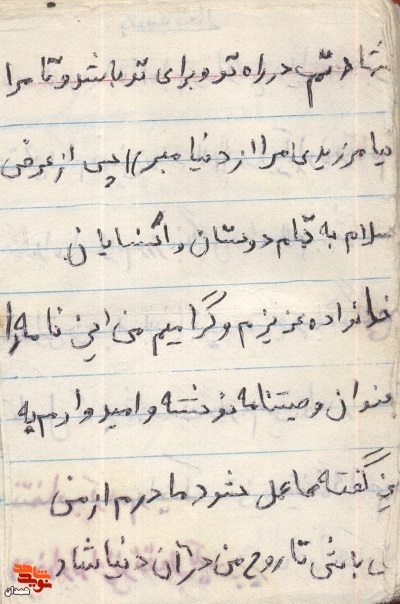 شهادتم در راه تو و برای تو باشد و تا مرا
نیامرزیدی مرا از دنیا مبر // پس از عرض
سلام به تمام دوستان و آشنایان
خانواده عزیزم و گرامیم من این نامه را
عنوان وصیتنامه نوشته و امیدوارم به
گفته عمل شود مادرم از من
باشی تا روح من در آن دنیا شاد